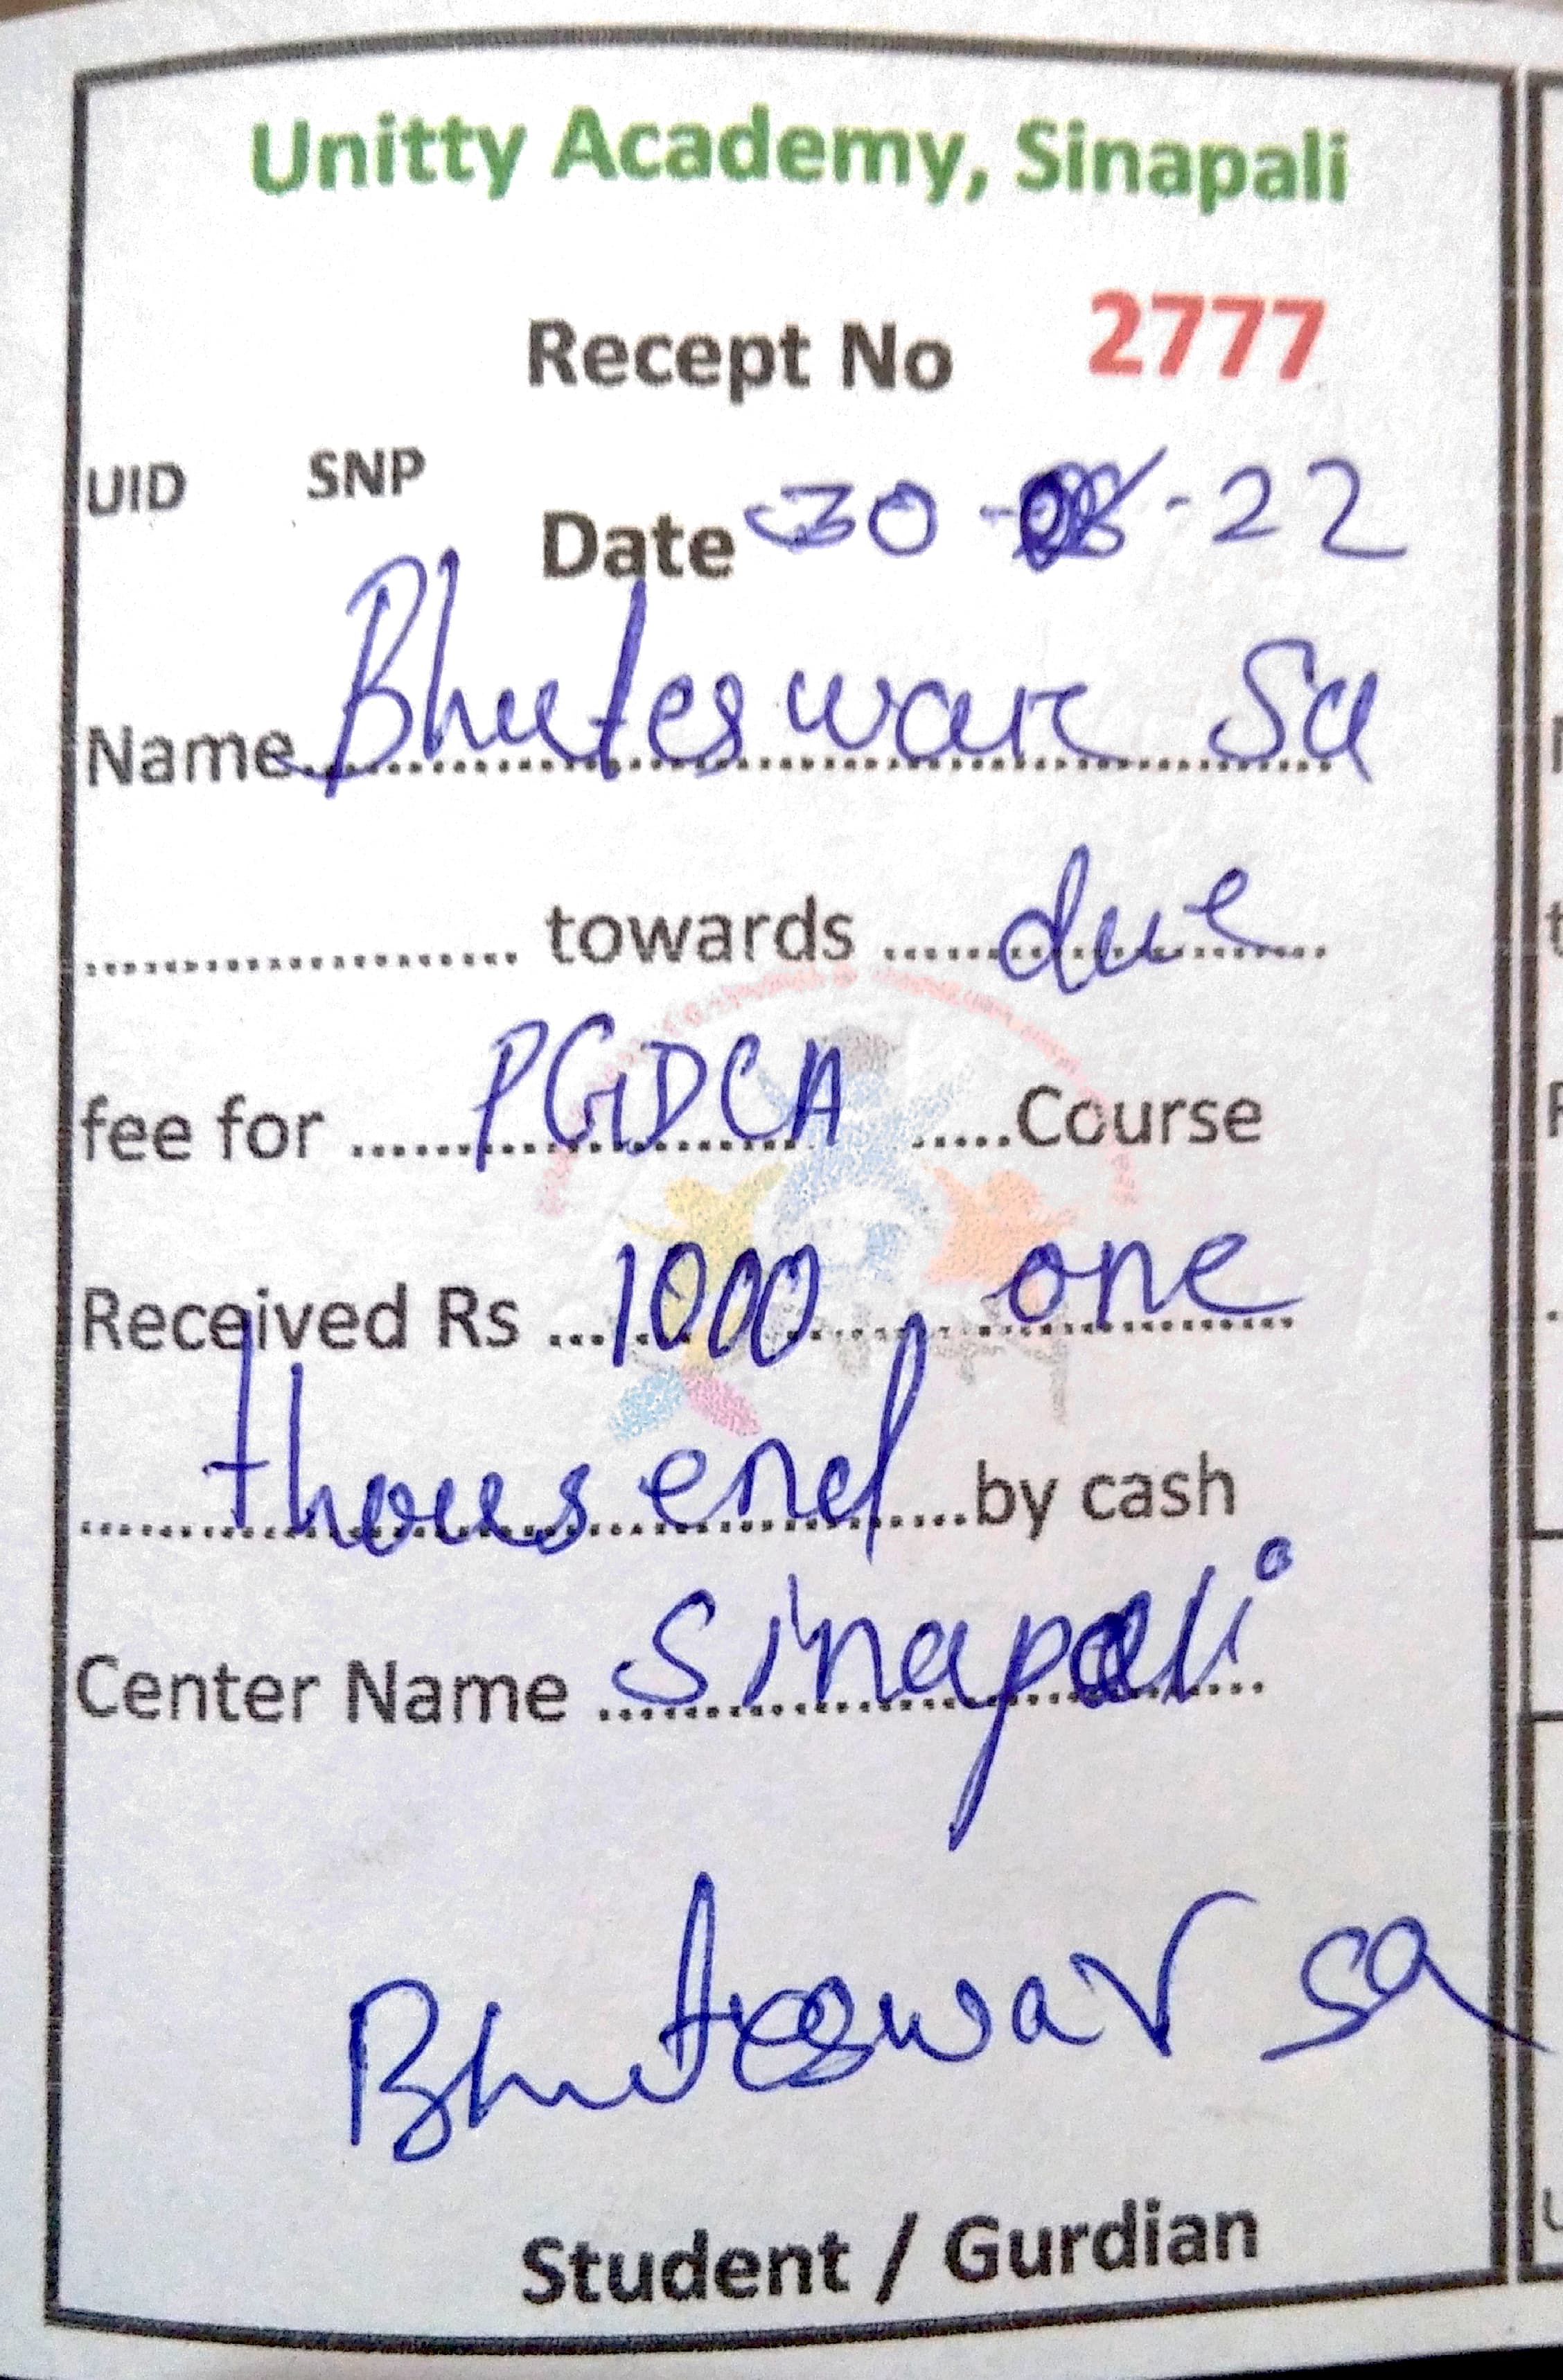 Unitty Academy, Sinapali
Recept No 2777
UID SNP
Date 30 - -22
Name Bhuteswar Sa
towards due
fee for PGDCA Course
Received Rs 1000 one
thousend by cash
Center Name Sinapali
Bhuteswar sa
Student / Gurdian